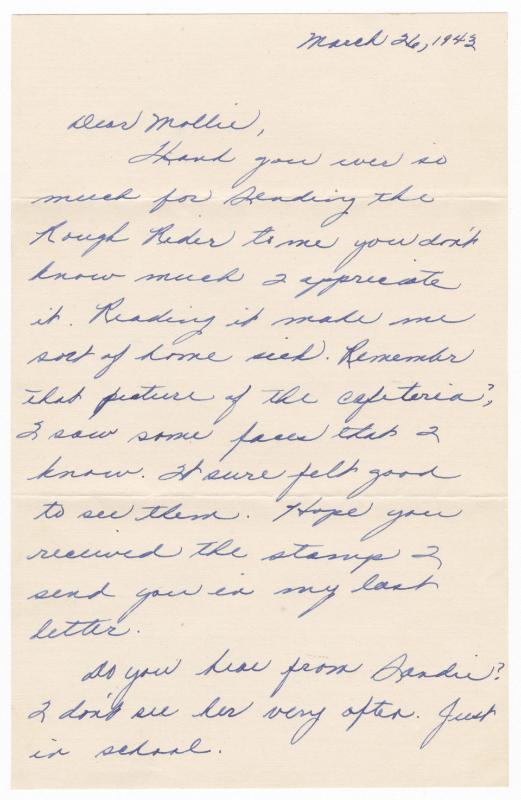 March 26, 1943
Dear Mollie,
Thank you ever so
much for sending the
Rough Rider to me you don't
know much I appriciate
it. Reading it made me
sort of home sick. Remember
that picture of the cafeteria?,
I saw some faces that I
know. It sure felt good
to see them. Hope you
received the stamp I
send you in my last
letter.
Do you hear from Sandie?
I don't see her very often. Just
in school.